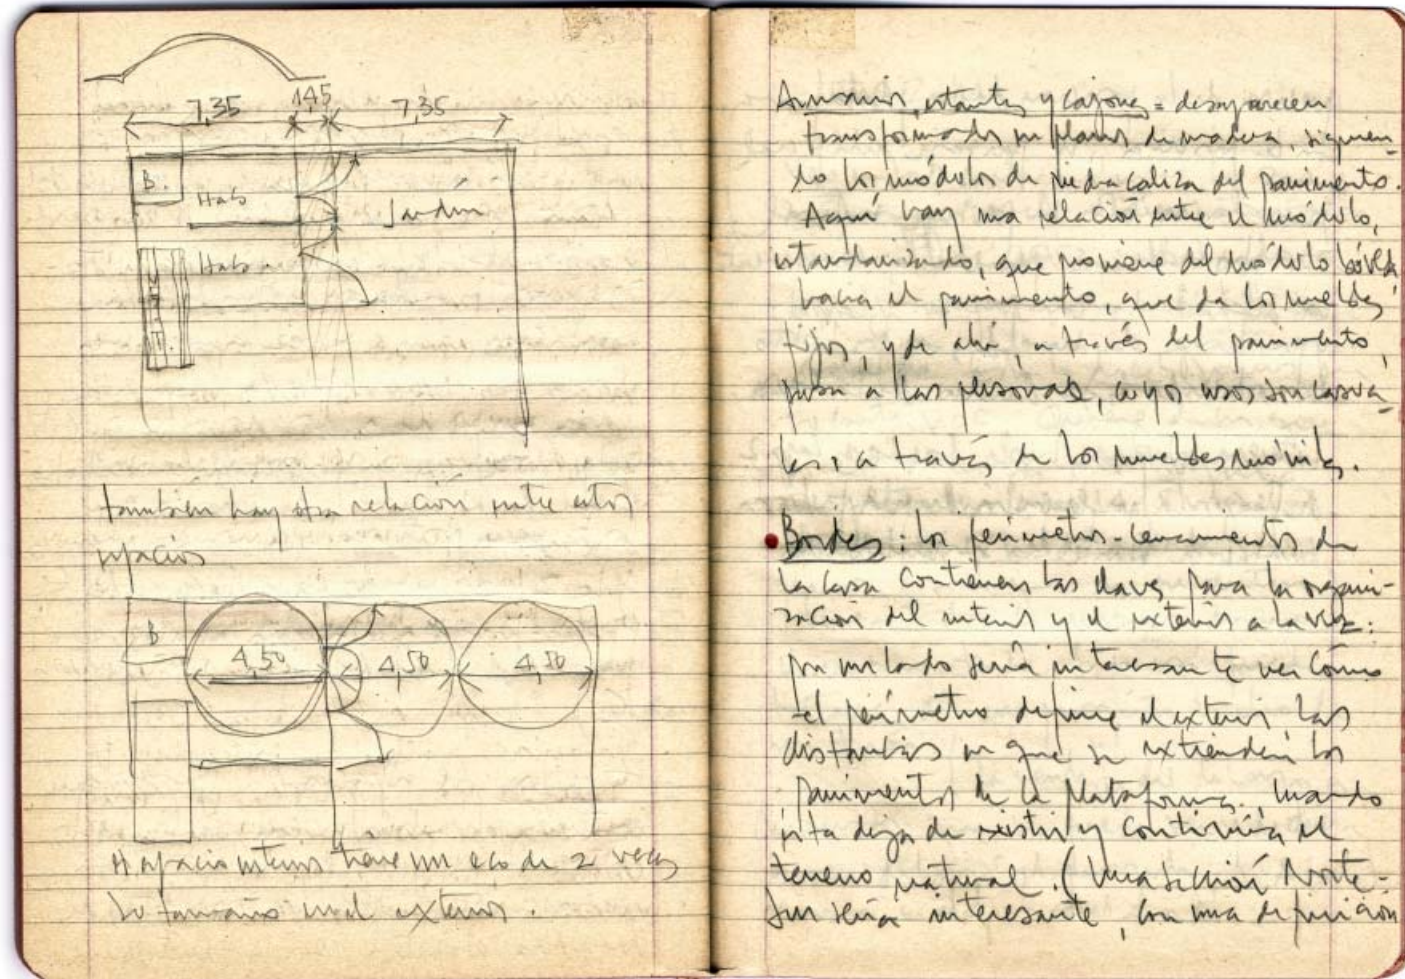 7,35 1,45 7,35
B.
Hab
Jardín
Hab
también hay otra relación entre estos
espacios
B
4,50 4,50 4,50
El espacio interior tiene un eco de 2 veces
su tamaño en el exterior.
Armarios, estantes y cajones = desaparecen
transformados en planos de madera, siguien-
do los módulos de piedra caliza del pavimento.
Aquí hay una relación entre el módulo,
estandarizado, que proviene del módulo bóveda
hacia el pavimento, que da los muebles
fijos, y de ahí, a través del pavimento,
pasa a las personas, cuyos usos son casua-
les, a través de los muebles móviles.
Bordes: los perímetros-cerramientos de
la casa contienen las claves para la organi-
zación del interior y el exterior a la vez:
por un lado sería interesante ver cómo
el perímetro define el exterior las
distancias en que se extienden los
pavimentos de la plataforma, cuando
ésta deja de existir y continúa el
terreno natural. (Una sección Norte-
Sur sería interesante, con una definición